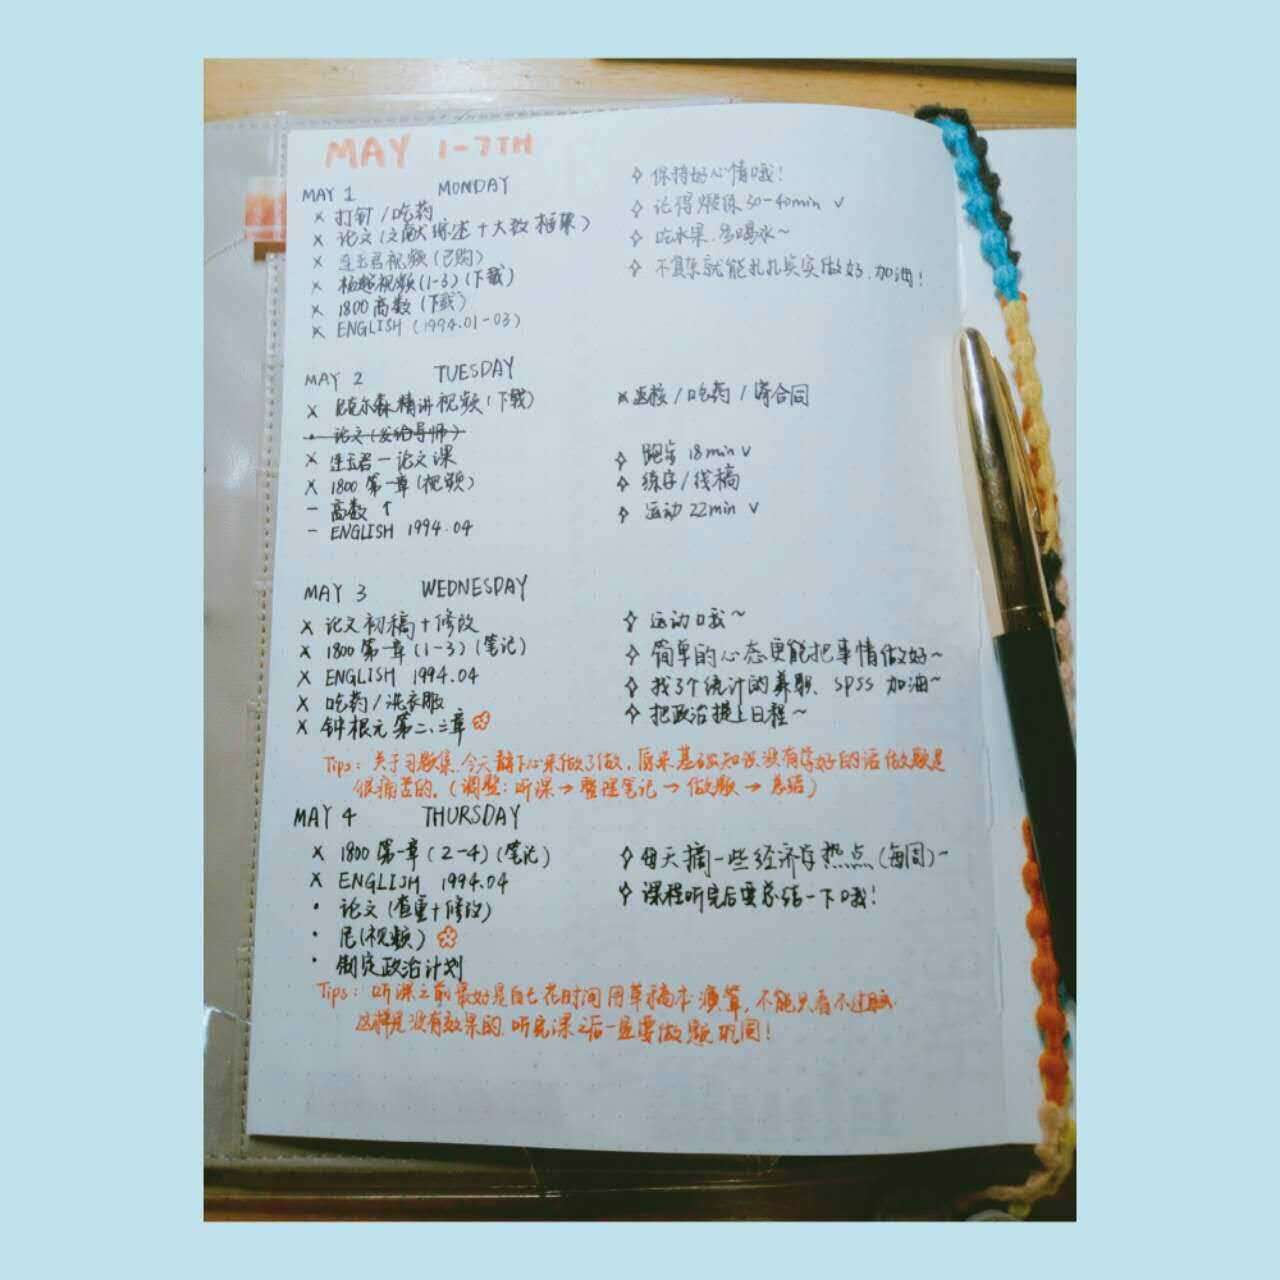 MAY 1-7TH
MAY 1 MONDAY
× 打针/吃药
× 论文(文献综述+大致框架)
× 连玉君视频(已购)
× 杨超视频(1-3)(下载)
× 1800高数(下载)
× ENGLISH (1994.01-03)
✧ 保持好心情哦!
✧ 记得锻炼30-40min ∨
✧ 吃水果.多喝水~
✧ 不复杂就能扎扎实实做好.加油!
MAY 2 TUESDAY
× 尼克尔森精讲视频(下载)
· 论文(发给导师)
× 连玉君一论文课
× 1800 第一章(视频)
- 高数 ↑
- ENGLISH 1994.04
× 返校/吃药/寄合同
✧ 跑步 18min ∨
✧ 练字/线稿
✧ 运动 22min ∨
MAY 3 WEDNESDAY
× 论文初稿+修改
× 1800 第一章(1-3)(笔记)
× ENGLISH 1994.04
× 吃药/洗衣服
× 钟根元 第二、三章
✧ 运动哦~
✧ 简单的心态更能把事情做好~
✧ 找了个统计的兼职、SPSS 加油~
✧ 把政治提上日程~
Tips: 关于习题集.今天静下心来做了做.原来基础知识没有学好的话做题是
很痛苦的.(调整:听课→整理笔记→做题→总结)
MAY 4 THURSDAY
× 1800 第一章(2-4)(笔记)
× ENGLISH 1994.04
· 论文(查重+修改)
· 尼(视频)
· 制定政治计划
✧ 每天摘一些经济学热点(每周)~
✧ 课程听完后要总结一下哦!
Tips: 听课之前最好是自己花时间用草稿本演算,不能只看不过脑.
这样是没有效果的.听完课之后一定要做题巩固!